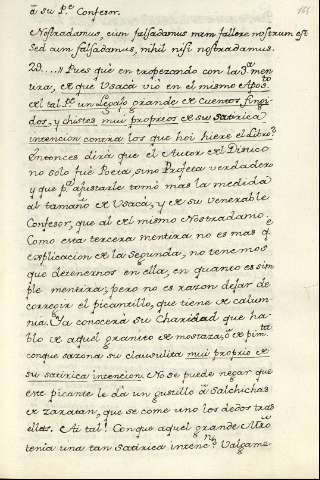 â su P.e Confesor.
Nostradamus, cum falsa damus nam fallere nostrum est
sed cum falsa damus, nihil nisi nostra damus.
29.....,, Pues què en tropezando con la 3.a men
tira, de que Usacà viò en el mismo Apos.to
del tal P.e un legajo grande de cuentos fingi
dos, y chistes mui proprios de su satirica
intencion contra los que hoi hiere el Libro?
Entonces dirà que el Autor del Disuco
no solo fuè Poeta, sino Profeta verdadero
y que p.a ajustarle tomò mas la medida
al tamaño de Usacà, y de su Venerable
Confesor, que al del mismo Nostradamo.
Como esta tercera mentira no es mas q.e
explicacion de la segunda, no tenemos
que detenernos en ella, en quanto es sim
ple mentira; pero no es razon dejar de
corregir el picantillo, que tiene de calum
nia. Ya conocerà su Charidad que ha
blo de aquel granito de mostaza, ô de pim.ta
conque sazona su clausulita mui proprio de
su satirica intencion. No se puede negar que
este picante le dà un gustillo â Salchichas
de Zaratan, que se come uno los dedos tras
ellas. Ai tal! Conque aquel grande
tenia una tan satirica intenc.n? Valgame